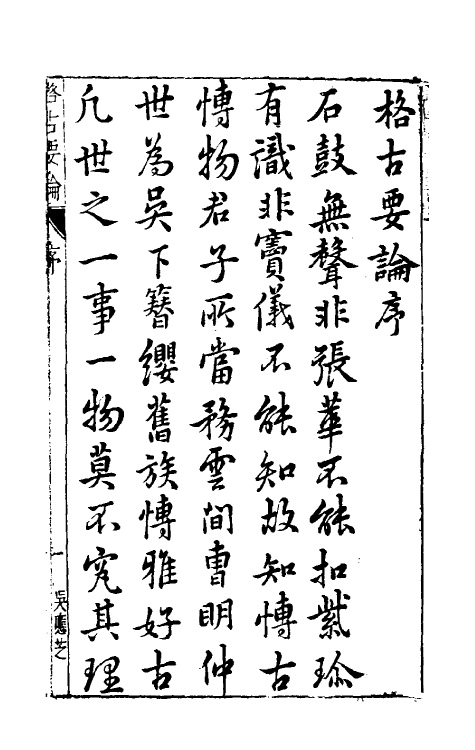 格古要論序
石鼓無聲非張華不能扣紫珎
有識非竇儀不能知故知愽古
愽物君子所當務雲間曹明仲
世為吳下簪纓舊族愽雅好古
凡世之一事一物莫不究其理
格古要論
序
一
吳應芝